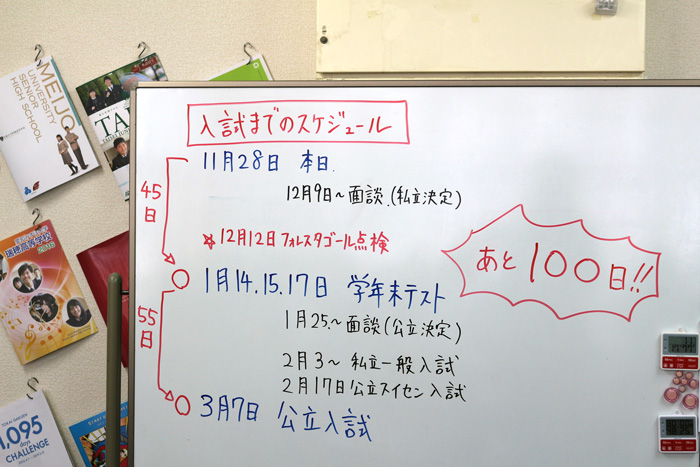 MEIJO
UNIVERSITY
SENIOR
HIGH SCHOOL
瑞穂高等学校
2016
1,095
days
CHALLENGE
入試までのスケジュール
11月28日 本日.
45日
12月9日~面談.(私立決定)
12月12日フォレスタゴール点検
1月14.15.17日 学年末テスト
55日
1月25.~面談(公立決定)
2月3~ 私立一般入試
2月17日公立スイセン入試
3月7日 公立入試
あと100日!!